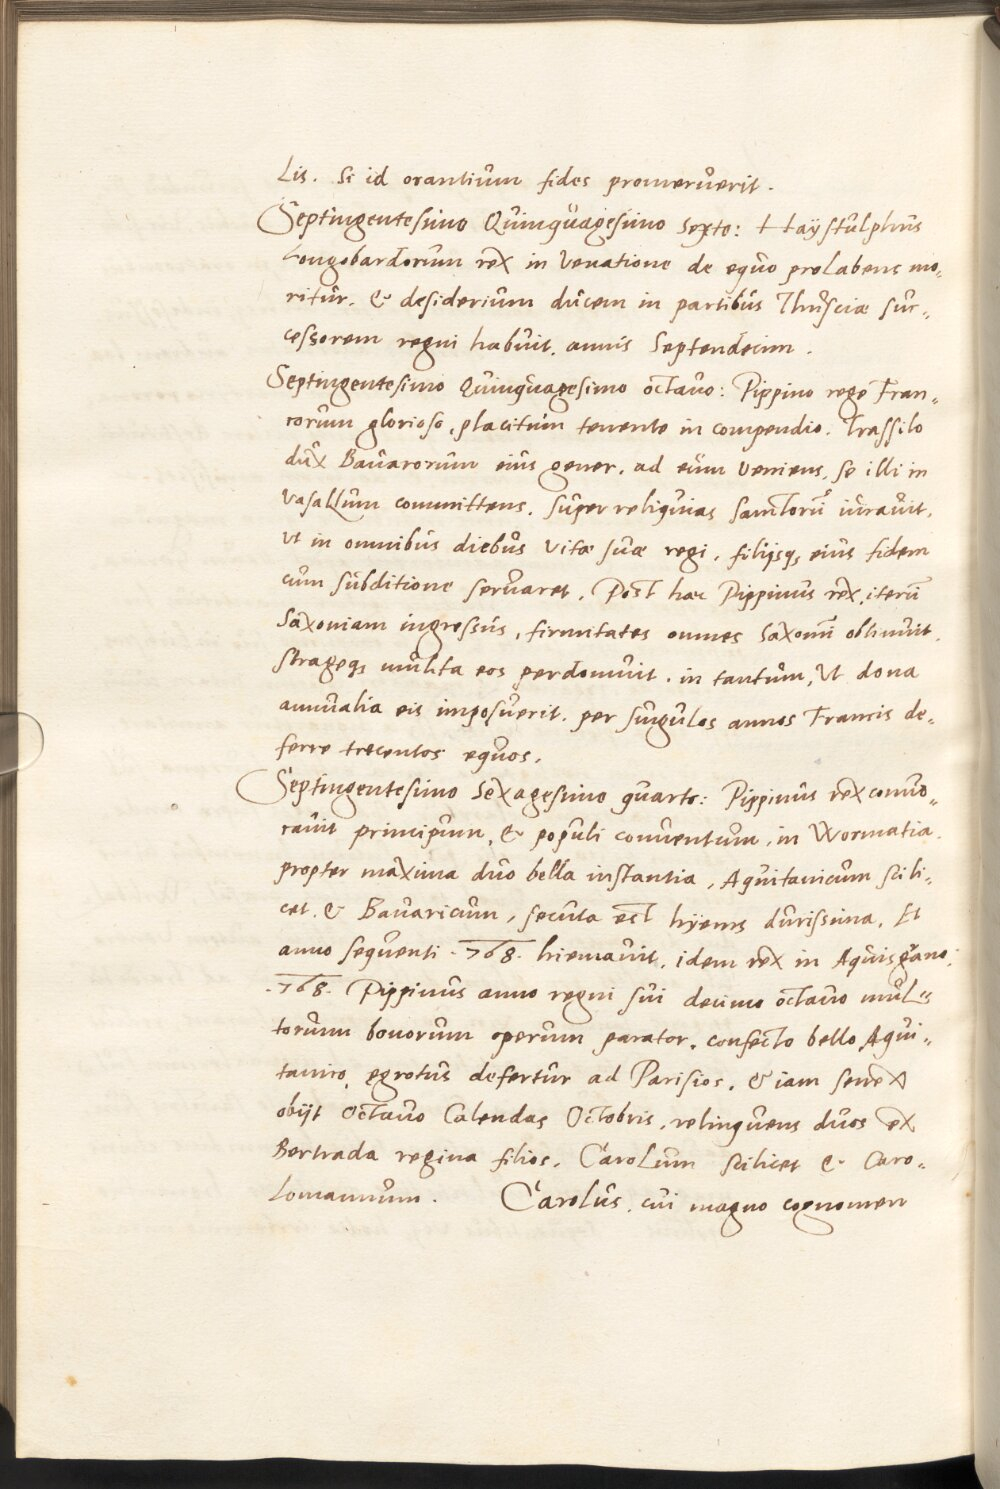 Lis. Si id orantium fides promeruerit.
Septingentesimo Quinquagesimo Sexto: Haÿstulphus
Longobardorum rex in Venatione de equo prolabens mo„
ritur. & desiderium ducem in partibus Thusciæ suc„
cessorem regni habuit. annis Septendecim.
Septingentesimo Quinquagesimo octauo: Pippino rege Fran„
corum glorioso, placitum tenente in compendio. Trassilo
dux Bauarorum eius gener, ad eum Veniens, se illi in
Vasallum committens. super reliquias sanctorũ iurauit,
Vt in omnibus diebus Vitæ suæ regi, filijsq, eius fidem
cum subditione seruaret. Post hac Pippinus rex, iterũ
Saxoniam ingressus, firmitates omnes Saxonũ obtinuit.
strageq, multa eos perdomuit. in tantum, Vt dona
annualia eis imposuerit. per singulos annos Francis de„
ferre trecentos equos.
Septingentesimo Sexagesimo quarto: Pippinus rex conuo„
cauit principum, & populi conuentum, in Wormatia.
propter maxima duo bella instantia, Aquitanicum scili„
cet. & Bauaricum, secuta est hÿems durissima. Et
anno sequenti .768. hiemauit, idem rex in Aquisgrano.
.768. Pippinus anno regni sui decimo octauo mul„
torum bonorum operum parator. confecto bello Aqui„
tanico, egrotus defertur ad Parisios. & iam senex
obijt Octauo Calendas Octobris, relinquens duos ex
Bertrada regina filios. Carolum scilicet & Caro„
lomannum. Carolus, cui magno cognomen